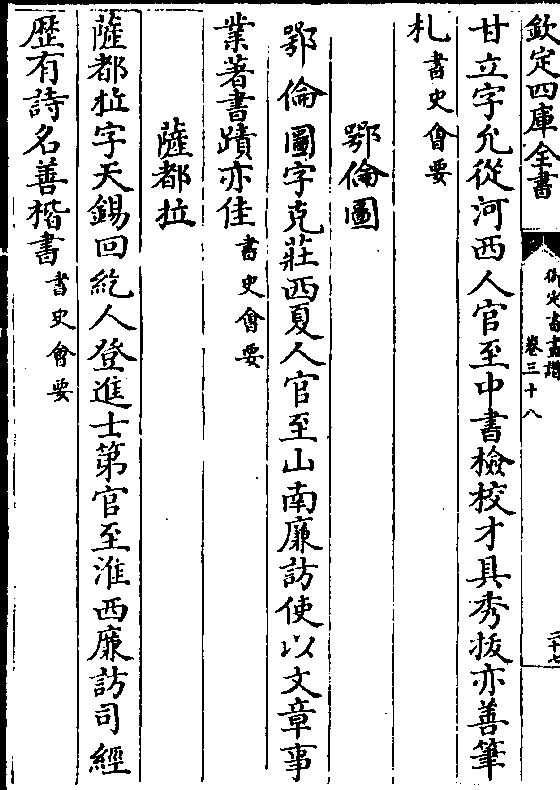 欽定四庫全書
御定書畫譜
卷三十八
二十七
甘立字允從河西人官至中書檢校才具秀拔亦善筆
札書史會要
鄂倫圖
鄂倫圖字克莊西夏人官至山南廉訪使以文章事
業著書蹟亦佳書史會要
薩都拉
薩都拉字天錫回紇人登進士第官至淮西廉訪司經
歴有詩名善楷書書史會要